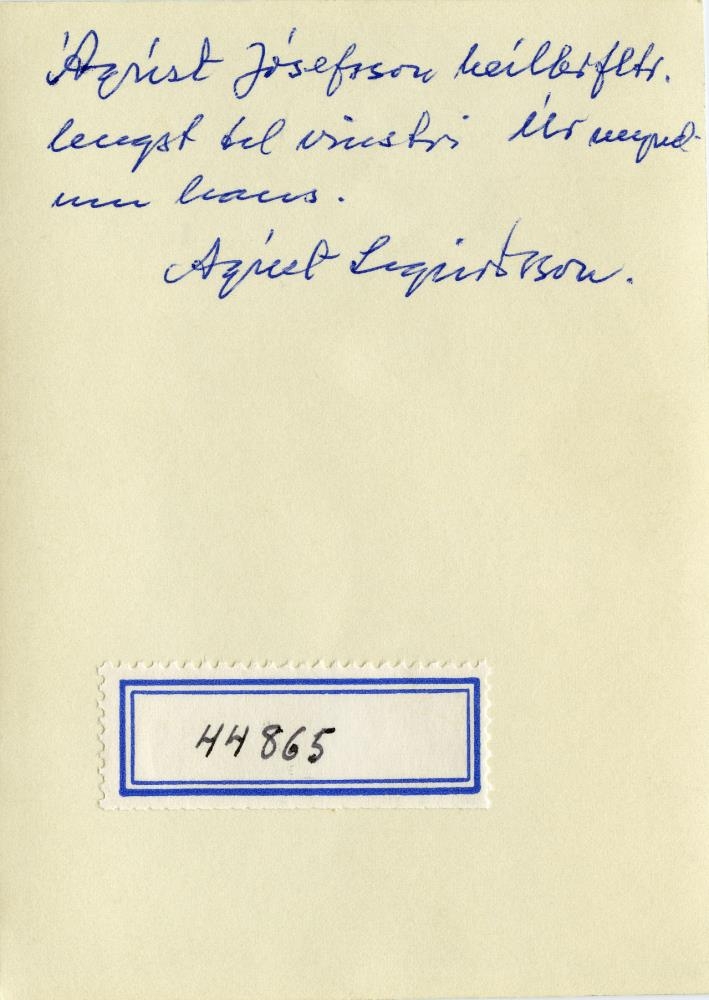 Ágúst Jósefsson heilbrfltr.
lengst til vinstri Úr mynd-
um hans.
Ágúst Sigurðsson.
44865